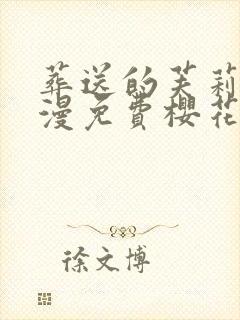 葬送的芙莉
漫免費櫻花
徐文博